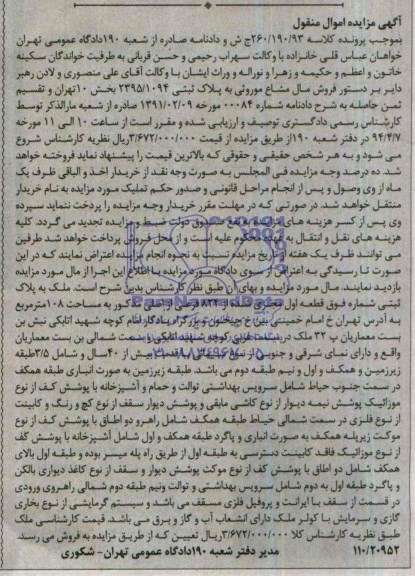 آگهی مزایده اموال منقول
بموجب پرونده کلاسه ۲۶۰/۱۹۰/۹۳ج ش و دادنامه صادره از شعبه ۱۹۰دادگاه عمومی تهران
خواهان عباس قلی خانزاده با وکالت سهراب رحیمی و حسن قربانی به طرفیت خواندگان سکینه
خاتون و اعظم و حکیمه و زهرا و نوراله و وراث ایشان با وکالت آقای علی منصوری و لادن رهبر
دایر بر دستور فروش مال مشاع موروثی به پلاک ثبتی ۲۳۹۵/۱۰۹۴ بخش ۱۰تهران و تقسیم
ثمن حاصله به شرح دادنامه شماره ۰۰۰۸۴ مورخه ۱۳۹۱/۰۲/۰۹ صادره از شعبه مارالذکر توسط
کارشناس رسمی دادگستری توصیف و ارزیابی شده و مقرر است از ساعت ۱۰ الی ۱۱ مورخه
۹۴/۴/۷ در دفتر شعبه ۱۹۰از طریق مزایده از قیمت ۳/۶۷۲/۰۰۰/۰۰۰ریال نظریه کارشناس شروع
می شود و به هر شخص حقیقی و حقوقی که بالاترین قیمت را پیشنهاد نماید فروخته خواهد
شد. ده درصد وجه مزایده فی المجلس به صورت وجه نقد از خریدار اخذ و الباقی ظرف یک
ماه از وی وصول و پس از انجام مراحل قانونی و صدور حکم تملیک مورد مزایده به نام خریدار
منتقل خواهد شد. در صورتی که در مهلت مقرر خریدار وجه مزایده را پرداخت ننماید سپرده
وی پس از کسر هزینه های مزایده به نفع صندوق دولت ضبط و مزایده تجدید می گردد. کلیه
هزینه های نقل و انتقال به عهده محکوم علیه است و از محل فروش پرداخت خواهد شد طرفین
می توانند ظرف یک هفته از تاریخ مزایده نسبت به نحوه انجام مزایده اعتراض نمایند که در این
صورت تا رسیدگی به اعتراض از سوی دادگاه مورد مزایده با اطلاع این اجرا از مال مورد مزایده
بازدید نمایند. مال مورد مزایده و بهای آن طبق نظر کارشناس بدین شرح است. ملک به پلاک
ثبتی شماره فوق قطعه اول به مساحت ۱۰۸مترمربع
به آدرس تهران خ امام خمینی بین خ جیحون و بزرگراه یادگار امام کوچه شهید اتابکی نبش بن
بست معماریان پ ۳۲ ملک در سمت غربی کوچه شهید اتابکی و سمت شمالی بن بست معماریان
واقع و دارای نمای شرقی و جنوبی از نوع قدمت بیش از ۴۰سال و شامل ۳/۵طبقه
زیرزمین و همکف و اول و نیم طبقه دوم می باشد. طبقه زیرزمین به صورت انباری طبقه همکف
در سمت جنوب حیاط شامل سرویس بهداشتی توالت و حمام و آشپزخانه با پوشش کف از نوع
موزائیک پوشش نیمه دیوار از نوع کاشی مابقی و پوشش دیوار سقف از نوع گچ و رنگ و کابینت
از نوع فلزی در سمت شمالی حیاط طبقه همکف شامل راهرو دو اطاق با پوشش کف از نوع
موکت زیرپله همکف به صورت انباری و پاگرد طبقه همکف و اول شامل آشپزخانه با پوشش کف
از نوع موزائیک فاقد کابینت دسترسی به طبقه اول از طریق راه پله میسر بوده و طبقه اول بالای
همکف شامل دو اطاق با پوشش کف از نوع موکت پوشش دیوار و سقف از نوع کاغذ دیواری بالکن
و پاگرد طبقه اول به دوم شامل سرویس بهداشتی و توالت ونیم طبقه دوم شمالی راهروی ورودی
در قسمت از سقف با ایرانت و پروفیل فلزی مسقف می باشد و سیستم گرمایشی از نوع بخاری
گازی و سرمایش با کولر ملک دارای انشعاب آب و گاز و برق می باشد. قیمت کارشناسی ملک
طبق نظریه کارشناس کلا ۳/۶۷۲/۰۰۰/۰۰۰ریال تعیین که از طریق مزایده به فروش می رسد.
۱۱۰/۲۰۹۵۲ مدیر دفتر شعبه ۱۹۰دادگاه عمومی تهران- شکوری